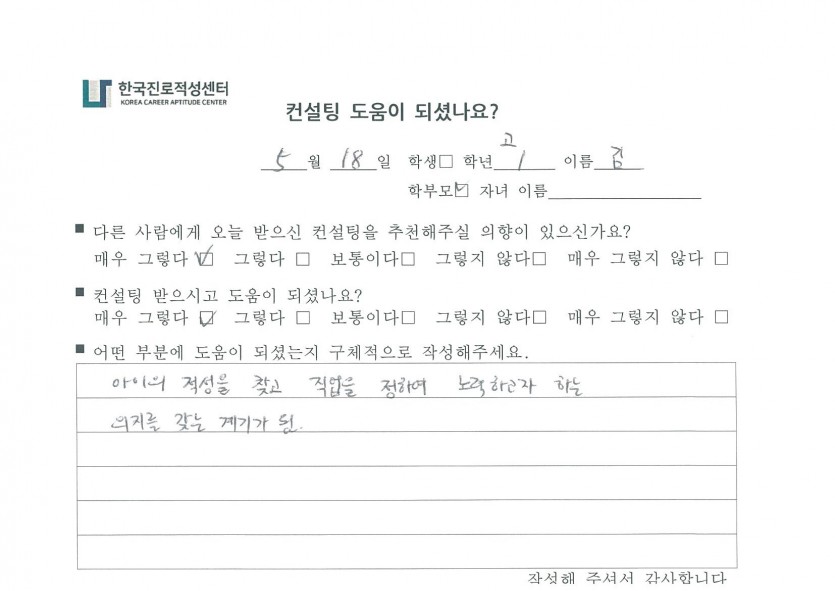 한국진로적성센터
KOREA CAREER APTITUDE CENTER
컨설팅 도움이 되셨나요?
5 월 18 일 학생□ 학년 고1 이름 김
학부모☑ 자녀 이름
■ 다른 사람에게 오늘 받으신 컨설팅을 추천해주실 의향이 있으신가요?
매우 그렇다 ☑ 그렇다 □ 보통이다□ 그렇지 않다□ 매우 그렇지 않다 □
■ 컨설팅 받으시고 도움이 되셨나요?
매우 그렇다 ☑ 그렇다 □ 보통이다□ 그렇지 않다□ 매우 그렇지 않다 □
■ 어떤 부분에 도움이 되셨는지 구체적으로 작성해주세요.
아이의 적성을 찾고 직업을 정하여 노력하고자 하는
의지를 갖는 계기가 됨.
작성해 주셔서 감사합니다